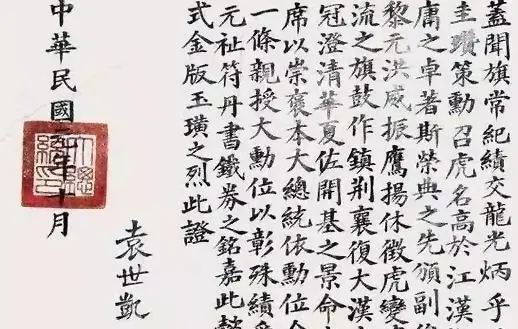 蓋聞旗常紀績交龍光炳乎
圭瓚策勳召虎名高於江漢
庸之卓著斯榮典之先頒副
黎元洪威振鷹揚休徵虎變
流之旗鼓作鎮荊襄復大漢
冠澄清華夏佐開基之景命
席以崇褒本大總統依勳位令
一條親授大勳位以彰殊績
元祉符丹書鐵券之銘嘉此懿
式金版玉璜之烈此證
袁世凱
中華民國年十月